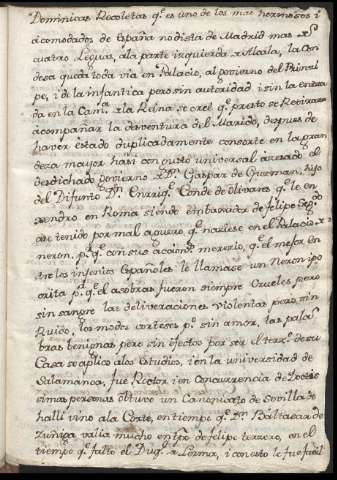 Dominicas Recoletas q.e es uno de los mas hermosos i
acomodados de España no dista de Madrid mas
quatro Leguas, a la parte izquierda Alcala, la Con
desa queda toda via en Palacio, al govierno del Princi
pe, i de la infantica pero sin autoridad i sin la entra
da en la Cam.a a la Reina se cree q.e presto se Retirara
acompañar la desventura del Marido, despues de
haver estado duplicadamente consorte en la gran
deza mayor hasi con gusto universal acavado el
desdichado govierno D.n Gaspar de Guzman, hijo
del Difunto D.n Enriq.e Conde de olivares q.e le en
xendro en Roma siendo embaxador de felipe seg.do
que tenido por mal aguero q.e naciese en el Palacio
neron. p.q.e con sus accion.s merecio, q.e el mejor en
tre los ingenios Españoles le llamase un Neron ipo
crita p.q.e el as obras fueron siempre Crueles pero
sin sangre las deliveraciones violentas pero sin
Ruido, los modos corteses p.o sin amor, las pala
bras benignas pero sin efectos por ser el terz.o de su
Casa se aplico a los Estudios, i en la universidad de
Salamanca, fue Rector i en Concurrencia de
simas personas obtuvo un Canonicato de Sevilla de
halli vino a la Corte, en tiempo q.e D.n Baltasar de
Zuñiga valia mucho en tpo de felipe terzero, en el
tiempo q.e falto el Duq.e Lerma, i con esto le fue facil